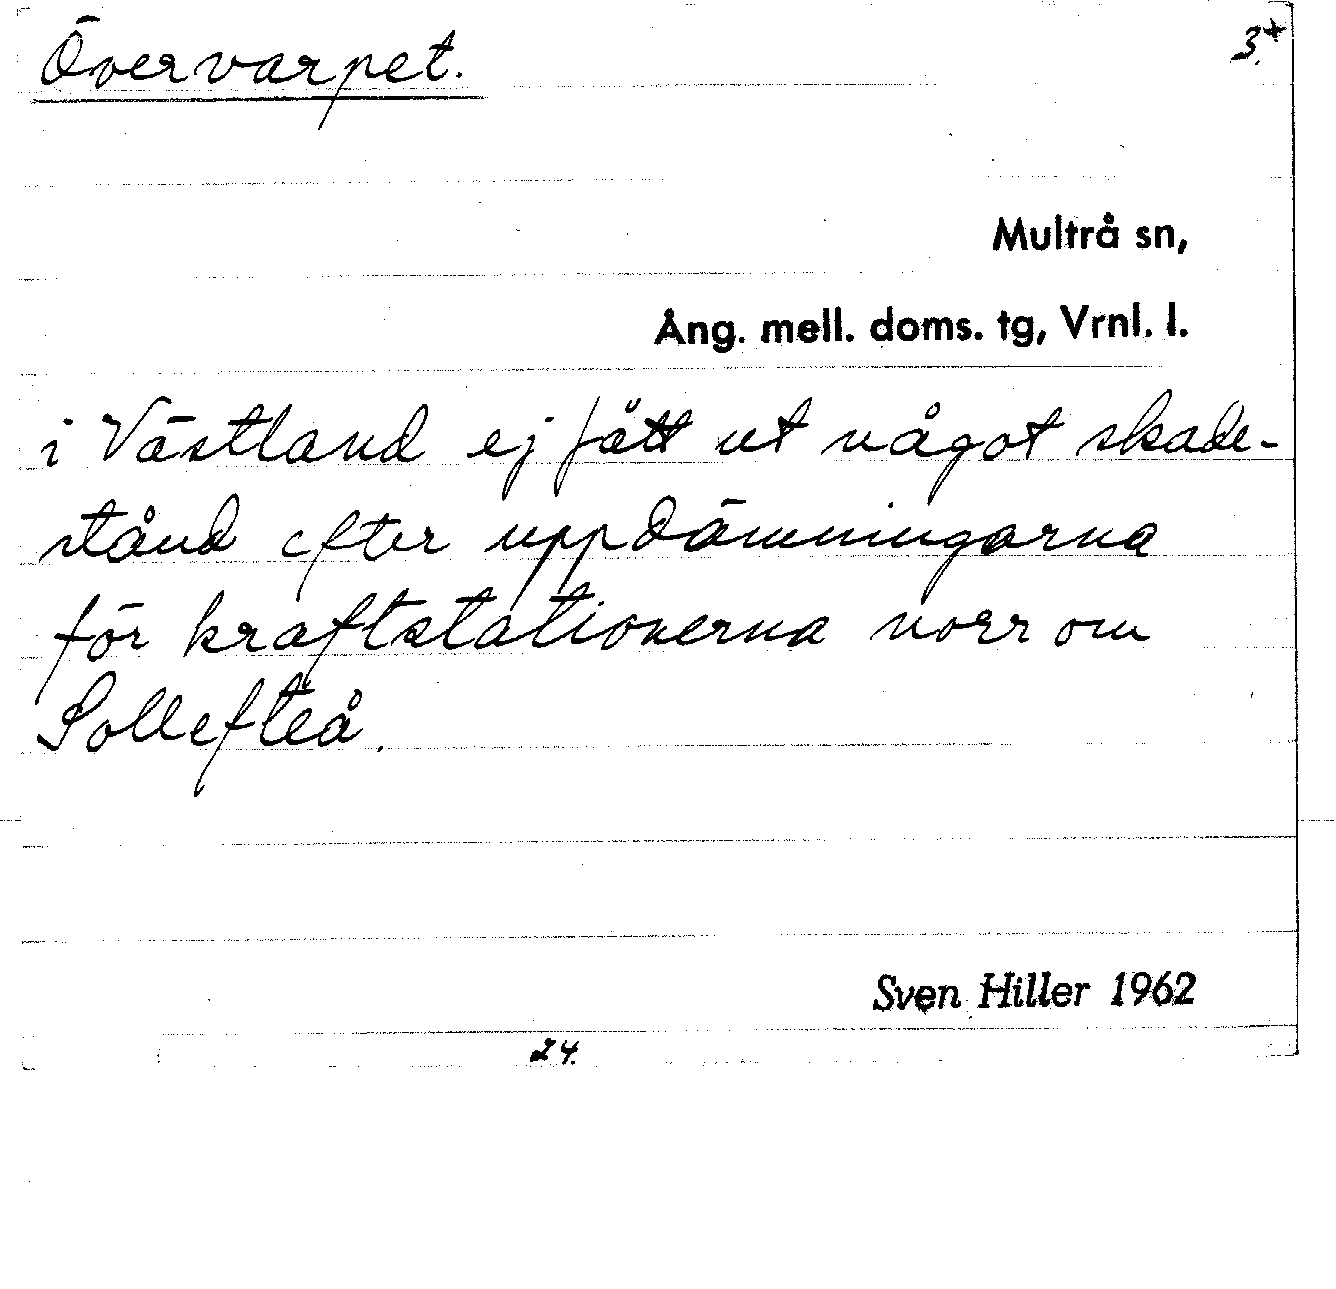 Övervarpet.
3.+
Multrå sn,
Ång. mell. doms. tg, Vrnl. l.
i Västland ej fått ut något skade-
stånd efter uppdämningarna
för kraftstationerna norr om
Sollefteå.
Sven Hiller 1962
24.